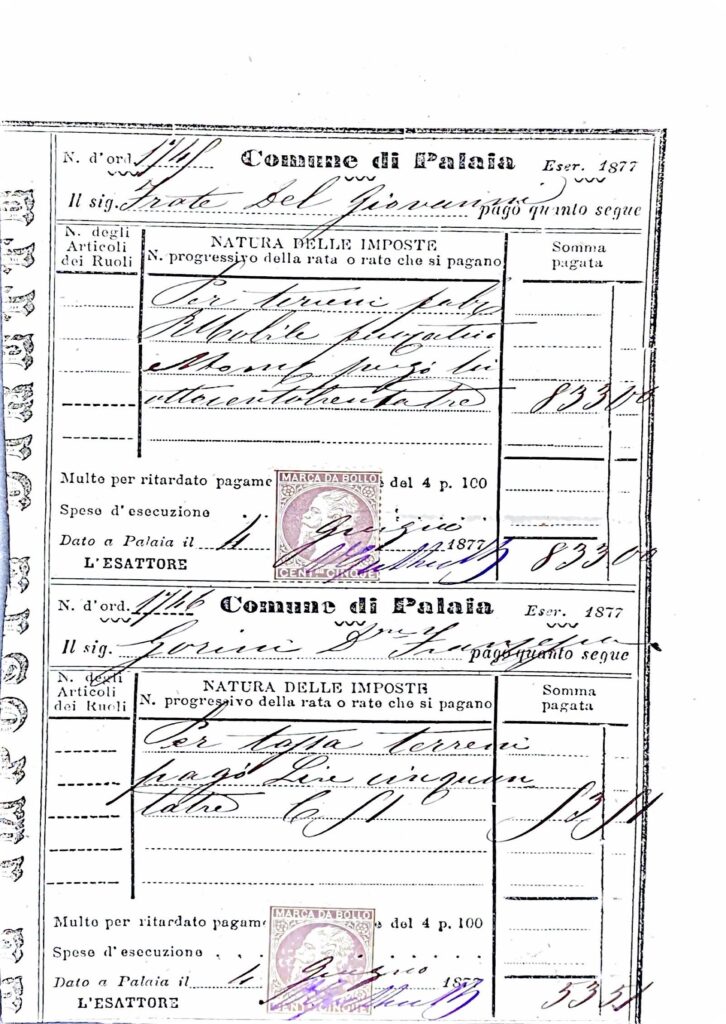 N. d'ord. 1745 Comune di Palaia Eser. 1877
Il sig. Frate Del Giovanni pagò quanto segue
N. degli Articoli dei Ruoli
NATURA DELLE IMPOSTE
N. progressivo della rata o rate che si pagano
Somma pagata
Per terreni
R Mobile
pagò
ottocentotrentatre 833 00
Multe per ritardato pagame del 4 p. 100
MARCA DA BOLLO
Spese d'esecuzione
Dato a Palaia il 4 Giugno 1877
L'ESATTORE 833 00
CENT.MI CINQUE
N. d'ord. 1746 Comune di Palaia Eser. 1877
Il sig. Gorini pagò quanto segue
N. degli Articoli dei Ruoli
NATURA DELLE IMPOSTE
N. progressivo della rata o rate che si pagano
Somma pagata
Per tassa terreni
pagò Lire cinquan
tatre C 51 53 51
Multe per ritardato pagame del 4 p. 100
MARCA DA BOLLO
Spese d'esecuzione
Dato a Palaia il 4 Giugno 1877
L'ESATTORE 53 51
CENT.MI CINQUE